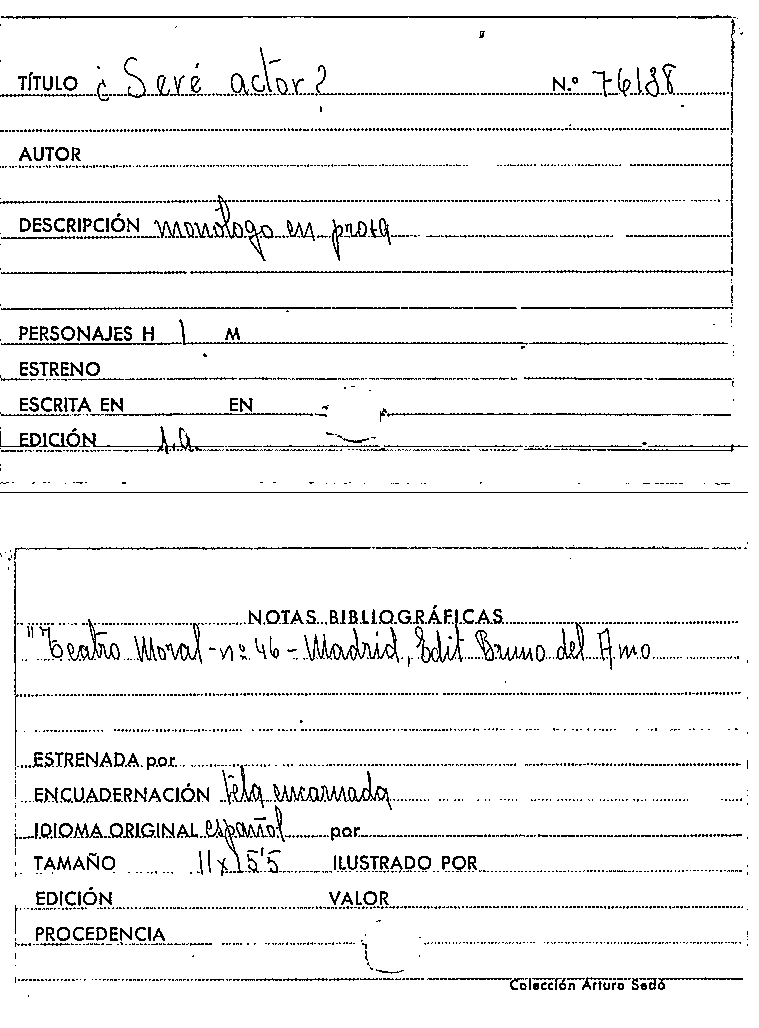 TÍTULO ¿Seré actor? N.º 76138
AUTOR
DESCRIPCIÓN monólogo en prosa
PERSONAJES H 1 M
ESTRENO
ESCRITA EN EN
EDICIÓN s.a.
NOTAS BIBLIOGRÁFICAS
"Teatro Moral - nº 46 - Madrid, Edit Bruno del Amo
ESTRENADA por
ENCUADERNACIÓN tela encarnada
IDIOMA ORIGINAL español por
TAMAÑO 11x15'5 ILUSTRADO POR
EDICIÓN VALOR
PROCEDENCIA
Colección Arturo Sedó